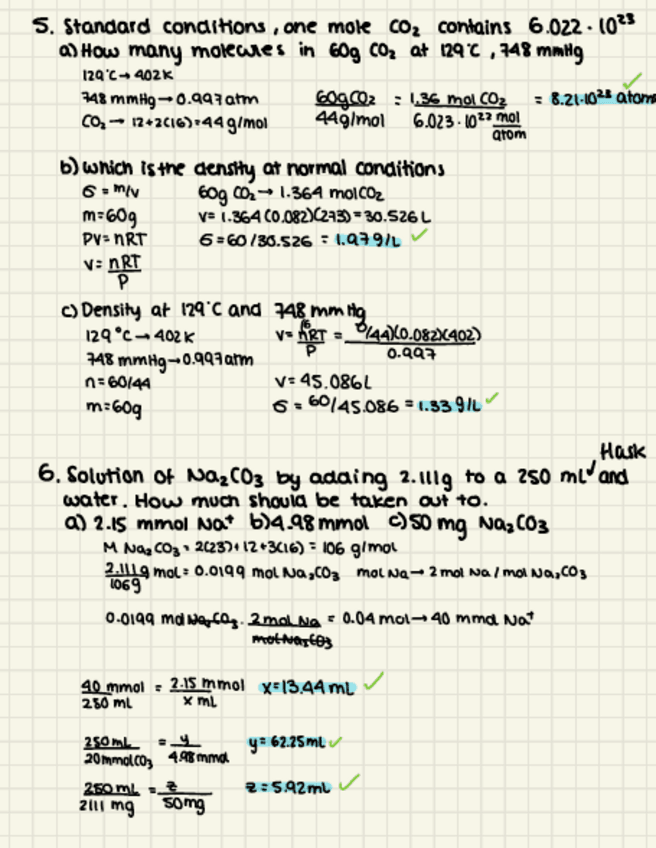 5. Standard conditions, one mole CO₂ contains 6.022 · 10²³
a) How many molecules in 60g CO₂ at 129°C, 748 mmHg
129°C → 402 K
748 mmHg → 0.997 atm
CO₂ → 12+2(16)=44 g/mol
60g CO₂ / 44g/mol = 1.36 mol CO₂ / 6.023 · 10²² mol/atom = 8.21·10²³ atom
b) which is the density at normal conditions
σ = m/v
m=60g
PV=nRT
v= nRT / P
60g CO₂ → 1.364 mol CO₂
v= 1.364 (0.082)(273) = 30.526 L
σ=60/30.526 = 1.97 g/L
c) Density at 129°C and 748 mm Hg
129°C → 402 K
748 mmHg → 0.997 atm
n=60/44
m=60g
v= nRT / P = /44)(0.082)(402) / 0.997
v=45.086L
σ = 60/45.086 = 1.33 g/L
6. Solution of Na₂CO₃ by adding 2.111g to a 250 mL flask and
water. How much should be taken out to.
a) 2.15 mmol Na⁺ b) 4.98 mmol c) 50 mg Na₂CO₃
M Na₂CO₃ = 2(23)+12+3(16) = 106 g/mol
2.111g / 106g mol = 0.0199 mol Na₂CO₃ mol Na → 2 mol Na / mol Na₂CO₃
0.0199 mol Na₂CO₃ · 2 mol Na / mol Na₂CO₃ = 0.04 mol → 40 mmol Na⁺
40 mmol / 250 mL = 2.15 mmol / x mL x=13.44 mL
250 mL / 20 mmol CO₃ = y / 4.98 mmol y = 62.25 mL
250 mL / 2111 mg = z / 50mg z = 5.92 mL